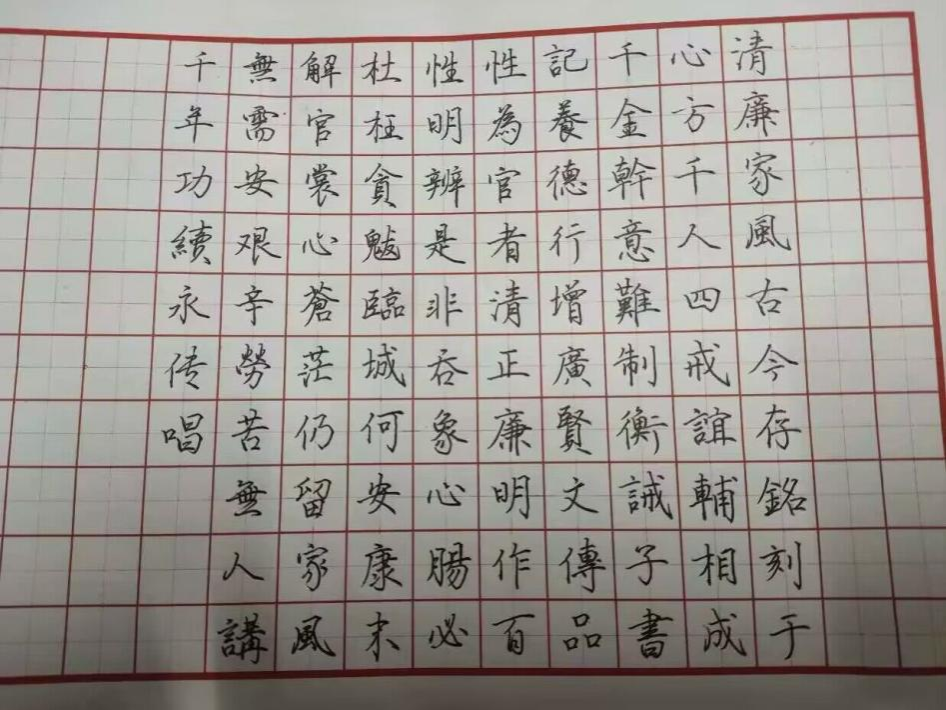 清廉家風古今存銘刻于
心方千人四戒誼輔相成
千金幹意難制衡誡子書
記養德行增廣賢文傳品
性為官者清正廉明作百
性明辨是非吞象心腸必
杜枉貪魃臨城何安康末
解官裳心蒼茫仍留家風
無需安艰辛勞苦無人講
千年功續永传唱